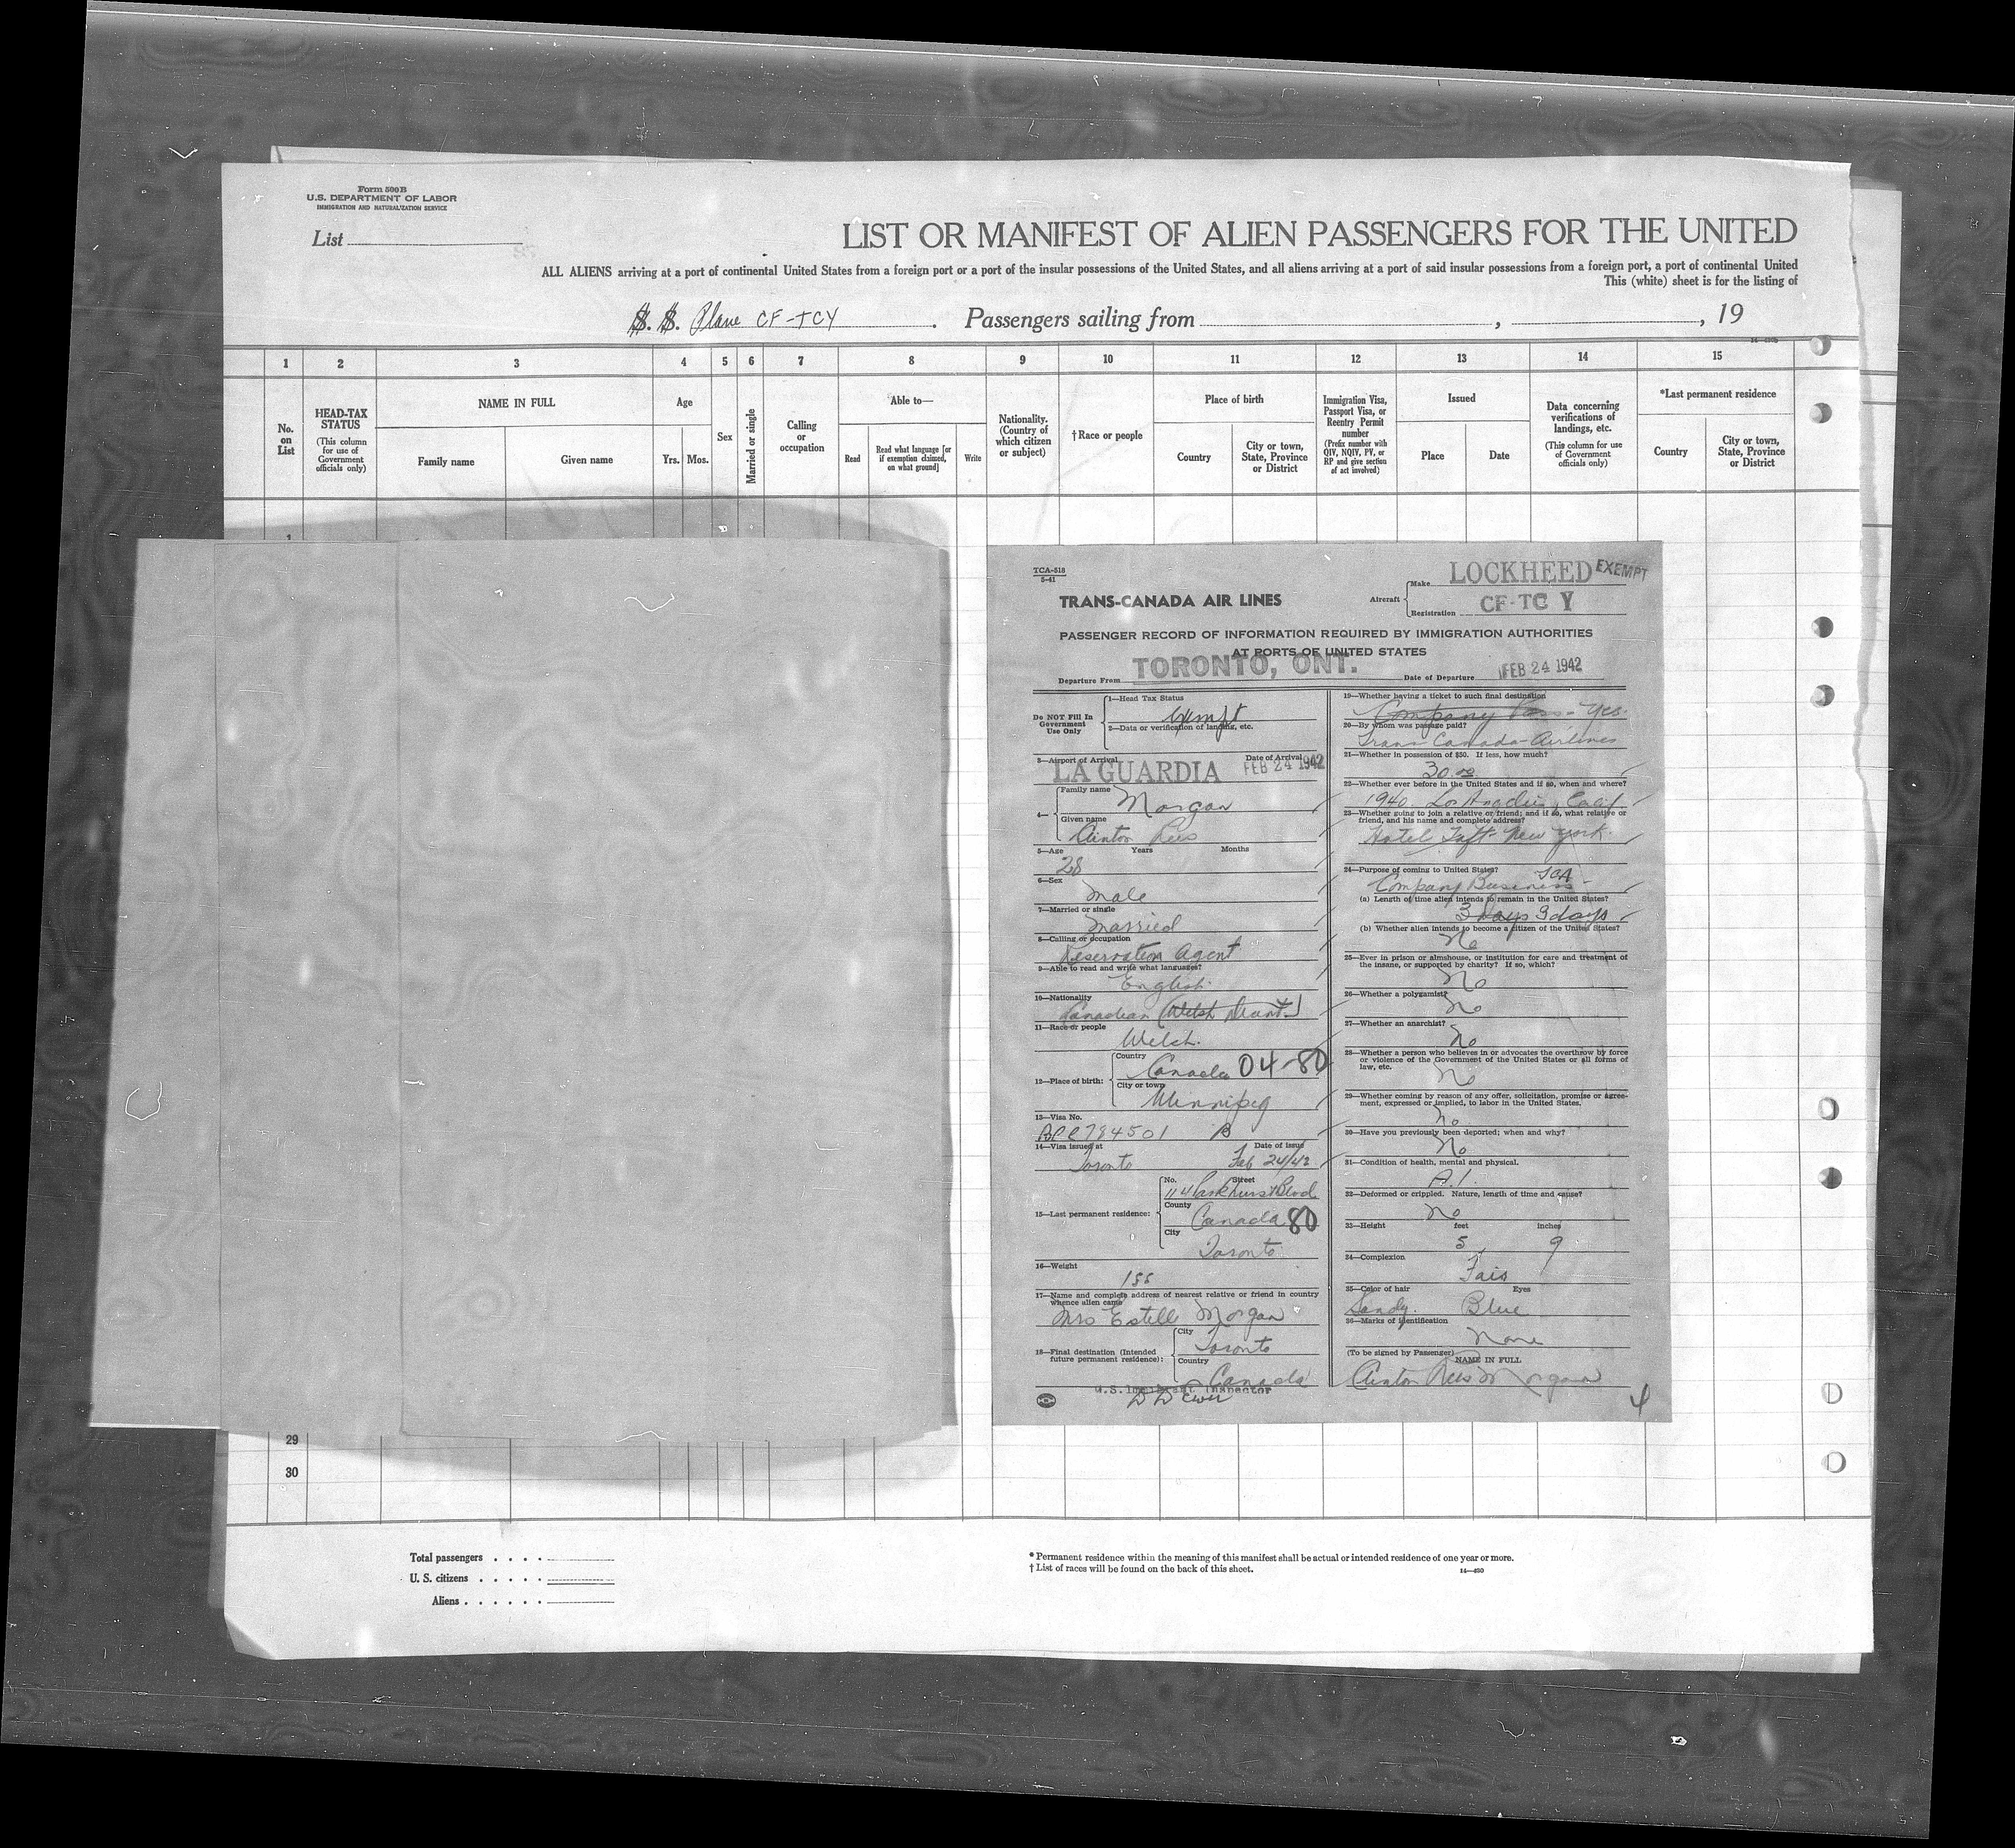 Form 500 B
U.S. DEPARTMENT OF LABOR
IMMIGRATION AND NATURALIZATION SERVICE
List
LIST OR MANIFEST OF ALIEN PASSENGERS FOR THE UNITED
ALL ALIENS arriving at a port of continental United States from a foreign port or a port of the insular possessions of the United States, and all aliens arriving at a port of said insular possessions from a foreign port, a port of continental United
This (white) sheet is for the listing of
S. S. Plane CF-TCY . Passengers sailing from , , 19
1 2 3 4 5 6 7 8 9 10 11 12 13 14 15
No. on List
HEAD-TAX STATUS
(This column for use of Government officials only)
NAME IN FULL
Family name Given name
Age
Yrs. Mos.
Sex
Married or single
Calling or occupation
Able to—
Read
Read what language [or if exemption claimed, on what ground]
Write
Nationality. (Country of which citizen or subject)
†Race or people
Place of birth
Country
City or town, State, Province or District
Immigration Visa, Passport Visa, or Reentry Permit number
(Prefix number with QIV, NQIV, PV, or RP and give section of act involved)
Issued
Place Date
Data concerning verifications of landings, etc.
(This column for use of Government officials only)
*Last permanent residence
Country
City or town, State, Province or District
TCA-518
5-41
TRANS-CANADA AIR LINES
Aircraft
Make LOCKHEED EXEMPT
Registration CF-TC Y
PASSENGER RECORD OF INFORMATION REQUIRED BY IMMIGRATION AUTHORITIES
AT PORTS OF UNITED STATES
Departure From TORONTO, ONT. Date of Departure FEB 24 1942
Do NOT Fill In Government Use Only
1—Head Tax Status
Exempt
2—Data or verification of landing, etc.
3—Airport of Arrival Date of Arrival
LA GUARDIA FEB 24 1942
4—
Family name
Morgan
Given name
Clinton Rees
5—Age Years Months
28
6—Sex
Male
7—Married or single
Married
8—Calling or occupation
Reservation Agent
9—Able to read and write what languages?
English
10—Nationality
Canadian
11—Race or people
Welch.
12—Place of birth:
Country
Canada 04-80
City or town
Winnipeg
13—Visa No.
784501 B
14—Visa issued at Date of issue
Toronto Feb 24/42
15—Last permanent residence:
No. Street
114 Parkhurst Blvd
County
Canada 80
City
Toronto
16—Weight
155
17—Name and complete address of nearest relative or friend in country
whence alien came
Mrs Estell Morgan
18—Final destination (Intended future permanent residence):
City
Toronto
Country
Canada
U.S. Immigrant Inspector
19—Whether having a ticket to such final destination
Company Pass - Yes.
20—By whom was passage paid?
Trans Canada Airlines
21—Whether in possession of $50. If less, how much?
30.00
22—Whether ever before in the United States and if so, when and where?
1940. Los Angeles, Calif
23—Whether going to join a relative or friend; and if so, what relative or
friend, and his name and complete address?
Hotel Taft - New York.
24—Purpose of coming to United States?
Company Business - TCA
(a) Length of time alien intends to remain in the United States?
3 days 3 days
(b) Whether alien intends to become a citizen of the United States?
No
25—Ever in prison or almshouse, or institution for care and treatment of
the insane, or supported by charity? If so, which?
No
26—Whether a polygamist?
No
27—Whether an anarchist?
No
28—Whether a person who believes in or advocates the overthrow by force
or violence of the Government of the United States or all forms of
law, etc.
No
29—Whether coming by reason of any offer, solicitation, promise or agree-
ment, expressed or implied, to labor in the United States.
No
30—Have you previously been deported; when and why?
No
31—Condition of health, mental and physical.
A.1.
32—Deformed or crippled. Nature, length of time and cause?
No
33—Height feet inches
5 9
34—Complexion
Fair
35—Color of hair Eyes
Sandy. Blue
36—Marks of identification
None
(To be signed by Passenger)
NAME IN FULL
Clinton Rees Morgan
4
29
30
Total passengers
U. S. citizens
Aliens
* Permanent residence within the meaning of this manifest shall be actual or intended residence of one year or more.
† List of races will be found on the back of this sheet.